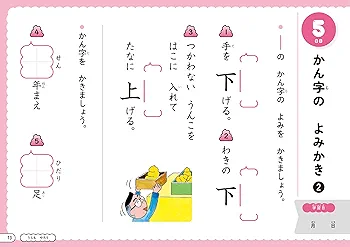 5
日目
かん字の よみかき 2
学習日
月 日
の かん字の よみを かきましょう。
1
手を 下げる。
2
わきの 下
3
つかわない うんこを
はこに 入れて
たなに 上げる。
かん字を かきましょう。
4
せん
年まえ
5
ひだり
足
13